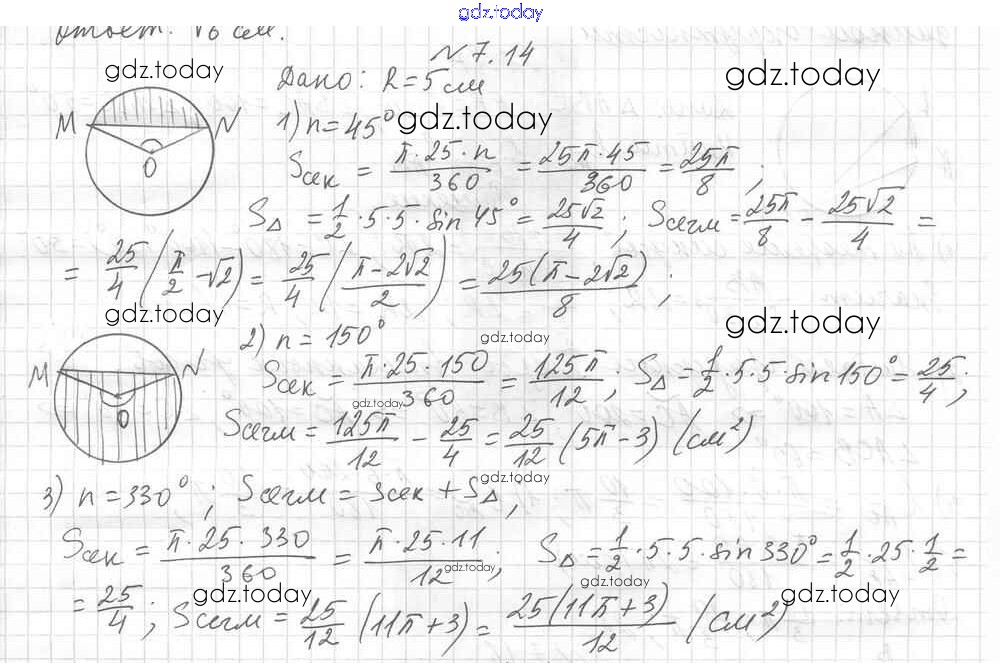 gdz.today
Ответ: √6 см.
N 7.14
gdz.today
Дано: R=5 см
gdz.today
M N O
1) n=45° gdz.today
Sсек = π·25·n/360 = 25π·45/360 = 25π/8 ;
S△ = 1/2·5·5·sin45° = 25√2/4 ; Sсегм = 25π/8 − 25√2/4 =
= 25/4 (π/2 − √2) = 25/4 ((π−2√2)/2) = 25(π−2√2)/8 ;
gdz.today
gdz.today
2) n=150°
gdz.today
M N O
Sсек = π·25·150/360 = 125π/12 ; S△ = 1/2·5·5·sin150° = 25/4 ;
gdz.today
Sсегм = 125π/12 − 25/4 = 25/12 (5π−3) (см²)
gdz.today
3) n=330° ; Sсегм = Sсек + S△ ;
Sсек = π·25·330/360 = π·25·11/12 ; S△ = 1/2·5·5·sin330° = 1/2·25·1/2 =
gdz.today
gdz.today
gdz.today
gdz.today
= 25/4 ; Sсегм = 25/12 (11π+3) = 25(11π+3)/12 (см²)